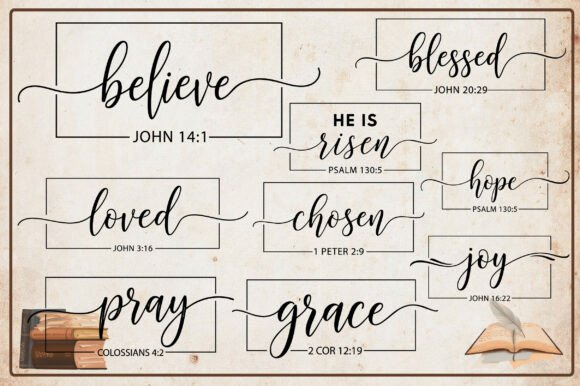 believe
JOHN 14:1
blessed
JOHN 20:29
HE IS
risen
PSALM 130:5
hope
PSALM 130:5
loved
JOHN 3:16
chosen
1 PETER 2:9
joy
JOHN 16:22
pray
COLOSSIANS 4:2
grace
2 COR 12:19